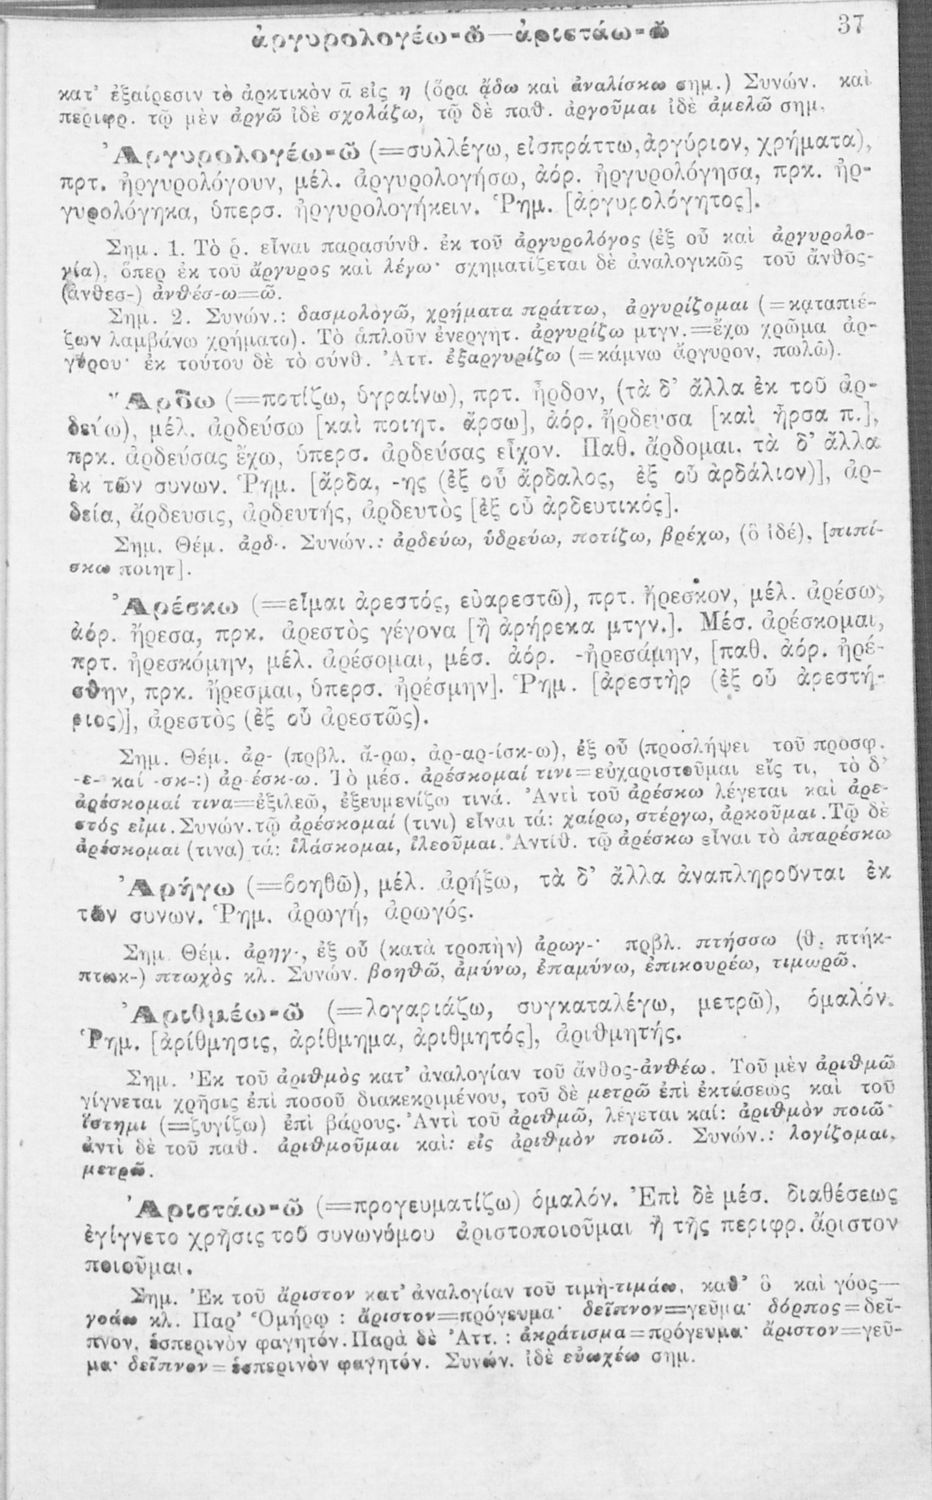 ἀργυρολογέω-ῶ—ἀριστάω-ῶ 37
κατ' ἐξαίρεσιν τὸ ἀρκτικὸν ᾱ εἰς η (ὅρα ᾄδω καὶ ἀναλίσκω σημ.) Συνών. καὶ
περιφρ. τῷ μὲν ἀργῶ ἰδὲ σχολάζω, τῷ δὲ παθ. ἀργοῦμαι ἰδὲ ἀμελῶ σημ.
Ἀργυρολογέω-ῶ (=συλλέγω, εἰσπράττω, ἀργύριον, χρήματα),
πρτ. ἠργυρολόγουν, μέλ. ἀργυρολογήσω, ἀόρ. ἠργυρολόγησα, πρκ. ἠρ-
γυρολόγηκα, ὑπερσ. ἠργυρολογήκειν. Ῥημ. [ἀργυρολόγητος].
Σημ. 1. Τὸ ῥ. εἶναι παρασύνθ. ἐκ τοῦ ἀργυρολόγος (ἐξ οὗ καὶ ἀργυρολο-
γία), ὅπερ ἐκ τοῦ ἄργυρος καὶ λέγω· σχηματίζεται δὲ ἀναλογικῶς τοῦ ἄνθος-
(ἀνθεσ-) ἀνθέσ-ω=ῶ.
Σημ. 2. Συνών.: δασμολογῶ, χρήματα πράττω, ἀργυρίζομαι (=καταπιέ-
ζων λαμβάνω χρήματα). Τὸ ἁπλοῦν ἐνεργητ. ἀργυρίζω μτγν.=ἔχω χρῶμα ἀρ-
γύρου· ἐκ τούτου δὲ τὸ σύνθ. Ἀττ. ἐξαργυρίζω (=κάμνω ἄργυρον, πωλῶ).
Ἄρδω (=ποτίζω, ὑγραίνω), πρτ. ἦρδον, (τὰ δ' ἄλλα ἐκ τοῦ ἀρ-
δεύω), μέλ. ἀρδεύσω [καὶ ποιητ. ἄρσω], ἀόρ. ἤρδευσα [καὶ ἦρσα π.],
πρκ. ἀρδεύσας ἔχω, ὑπερσ. ἀρδεύσας εἶχον. Παθ. ἄρδομαι, τὰ δ' ἄλλα
ἐκ τῶν συνων. Ῥημ. [ἄρδα, -ης (ἐξ οὗ ἄρδαλος, ἐξ οὗ ἀρδάλιον)], ἀρ-
δεία, ἄρδευσις, ἀρδευτής, ἀρδευτὸς [ἐξ οὗ ἀρδευτικός].
Σημ. Θέμ. ἀρδ-. Συνών.: ἀρδεύω, ὑδρεύω, ποτίζω, βρέχω, (ὃ ἰδέ), [πιπί-
σκω ποιητ].
Ἀρέσκω (=εἶμαι ἀρεστός, εὐαρεστῶ), πρτ. ἤρεσκον, μέλ. ἀρέσω,
ἀόρ. ἤρεσα, πρκ. ἀρεστὸς γέγονα [ἢ ἀρήρεκα μτγν.]. Μέσ. ἀρέσκομαι,
πρτ. ἠρεσκόμην, μέλ. ἀρέσομαι, μέσ. ἀόρ. -ἠρεσάμην, [παθ. ἀόρ. ἠρέ-
σθην, πρκ. ἤρεσμαι, ὑπερσ. ἠρέσμην]. Ῥημ. [ἀρεστὴρ (ἐξ οὗ ἀρεστή-
ριος)], ἀρεστὸς (ἐξ οὗ ἀρεστῶς).
Σημ. Θέμ. ἀρ- (πρβλ. ἄ-ρω, ἀρ-αρ-ίσκ-ω), ἐξ οὗ (προσλήψει τοῦ προσφ.
-ε- καί -σκ-:) ἀρ-έσκ-ω. Τὸ μέσ. ἀρέσκομαί τινι=εὐχαριστοῦμαι εἴς τι, τὸ δ'
ἀρέσκομαί τινα=ἐξιλεῶ, ἐξευμενίζω τινά. Ἀντὶ τοῦ ἀρέσκω λέγεται καὶ ἀρε-
στός εἰμι. Συνών. τῷ ἀρέσκομαί (τινι) εἶναι τά: χαίρω, στέργω, ἀρκοῦμαι. Τῷ δὲ
ἀρέσκομαι (τινα) τά: ἱλάσκομαι, ἱλεοῦμαι. Ἀντίθ. τῷ ἀρέσκω εἶναι τὸ ἀπαρέσκω
Ἀρήγω (=βοηθῶ), μέλ. ἀρήξω, τὰ δ' ἄλλα ἀναπληροῦνται ἐκ
τῶν συνων. Ῥημ. ἀρωγή, ἀρωγός.
Σημ. Θέμ. ἀρηγ-, ἐξ οὗ (κατὰ τροπὴν) ἀρωγ-· πρβλ. πτήσσω (θ. πτήκ-
πτωκ-) πτωχὸς κλ. Συνών. βοηθῶ, ἀμύνω, ἐπαμύνω, ἐπικουρέω, τιμωρῶ.
Ἀριθμέω-ῶ (=λογαριάζω, συγκαταλέγω, μετρῶ), ὁμαλόν.
Ῥημ. [ἀρίθμησις, ἀρίθμημα, ἀριθμητός], ἀριθμητής.
Σημ. Ἐκ τοῦ ἀριθμὸς κατ' ἀναλογίαν τοῦ ἄνθος-ἀνθέω. Τοῦ μὲν ἀριθμῶ
γίγνεται χρῆσις ἐπὶ ποσοῦ διακεκριμένου, τοῦ δὲ μετρῶ ἐπὶ ἐκτάσεως καὶ τοῦ
ἵστημι (=ζυγίζω) ἐπὶ βάρους. Ἀντὶ τοῦ ἀριθμῶ, λέγεται καί: ἀριθμὸν ποιῶ·
ἀντὶ δὲ τοῦ παθ. ἀριθμοῦμαι καὶ: εἰς ἀριθμὸν ποιῶ. Συνών.: λογίζομαι,
μετρῶ.
Ἀριστάω-ῶ (=προγευματίζω) ὁμαλόν. Ἐπὶ δὲ μέσ. διαθέσεως
ἐγίγνετο χρῆσις τοῦ συνωνύμου ἀριστοποιοῦμαι ἢ τῆς περιφρ. ἄριστον
ποιοῦμαι.
Σημ. Ἐκ τοῦ ἄριστον κατ' ἀναλογίαν τοῦ τιμὴ-τιμάω, καθ' ὃ καὶ γόος—
γοάω κλ. Παρ' Ὁμήρῳ : ἄριστον=πρόγευμα· δεῖπνον=γεῦμα· δόρπος=δεῖ-
πνον, ἑσπερινὸν φαγητόν. Παρὰ δὲ Ἀττ. : ἀκράτισμα=πρόγευμα· ἄριστον=γεῦ-
μα· δεῖπνον=ἑσπερινὸν φαγητόν. Συνών. ἰδὲ εὐωχέω σημ.